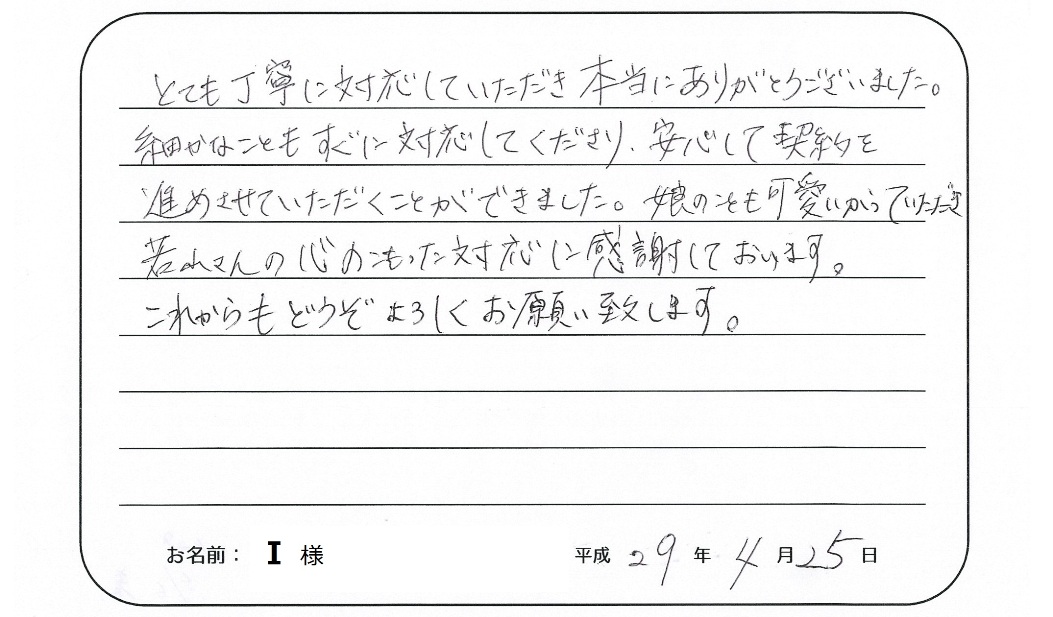 とても丁寧に対応していただき本当にありがとうございました。
細かなこともすぐに対応してくださり、安心して契約を
進めさせていただくことができました。娘のことも可愛いがっていただき
若山さんの心のこもった対応に感謝しております。
これからもどうぞよろしくお願い致します。
お名前： I 様 平成 29 年 4 月 25 日